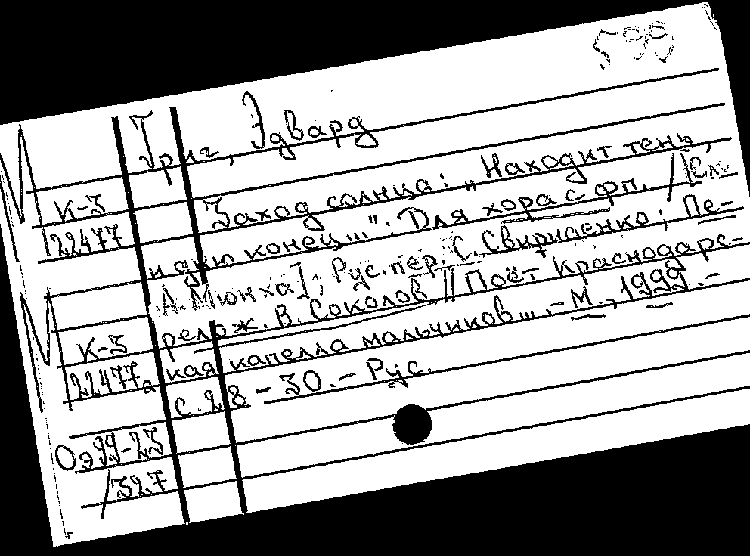 599
Григ, Эдвард
М К-3
22477
Заход солнца: „Находит тень,
и дню конец...". Для хора с фп. / [Сл.
А. Мюнха]; Рус. пер. С. Свириденко; Пе-
релож. В. Соколов // Поёт Краснодарс-
кая капелла мальчиков... - М., 1999. -
С. 28-30. - Рус.
М К-3
22477а
Оэ99-23
/327